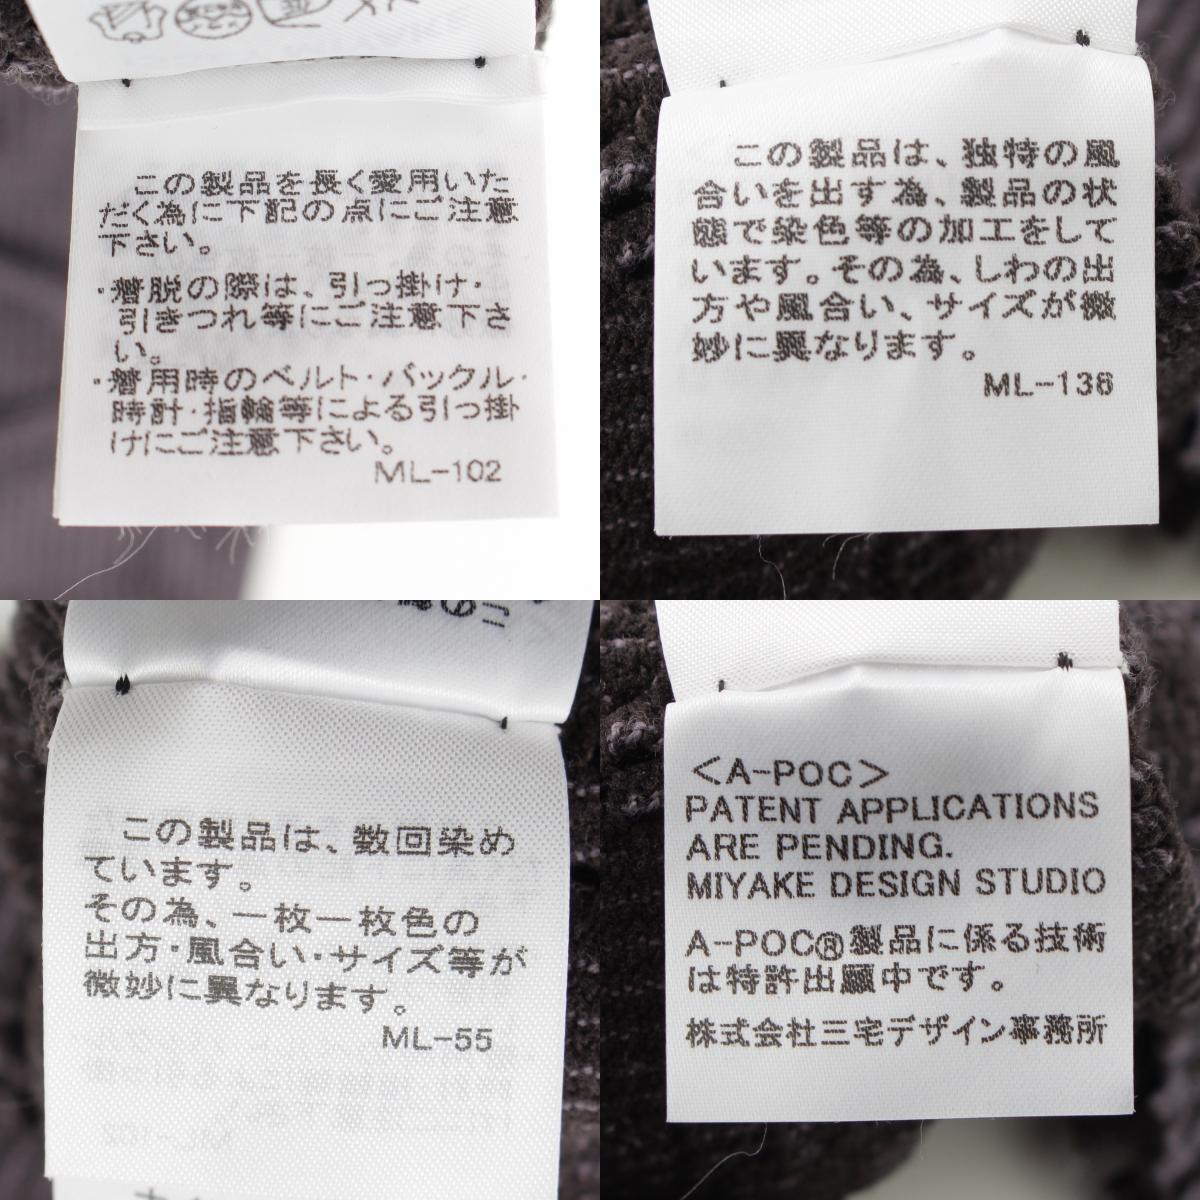 この製品を長く愛用いた
だく為に下記の点にご注意
下さい。
・着脱の際は、引っ掛け・
引きつれ等にご注意下さ
い。
・着用時のベルト・バックル・
時計・指輪等による引っ掛
けにご注意下さい。
ML-102
この製品は、独特の風
合いを出す為、製品の状
態で染色等の加工をして
います。その為、しわの出
方や風合い、サイズが微
妙に異なります。
ML-138
この製品は、数回染め
ています。
その為、一枚一枚色の
出方・風合い・サイズ等が
微妙に異なります。
ML-55
<A-POC>
PATENT APPLICATIONS
ARE PENDING.
MIYAKE DESIGN STUDIO
A-POC®製品に係る技術
は特許出願中です。
株式会社三宅デザイン事務所